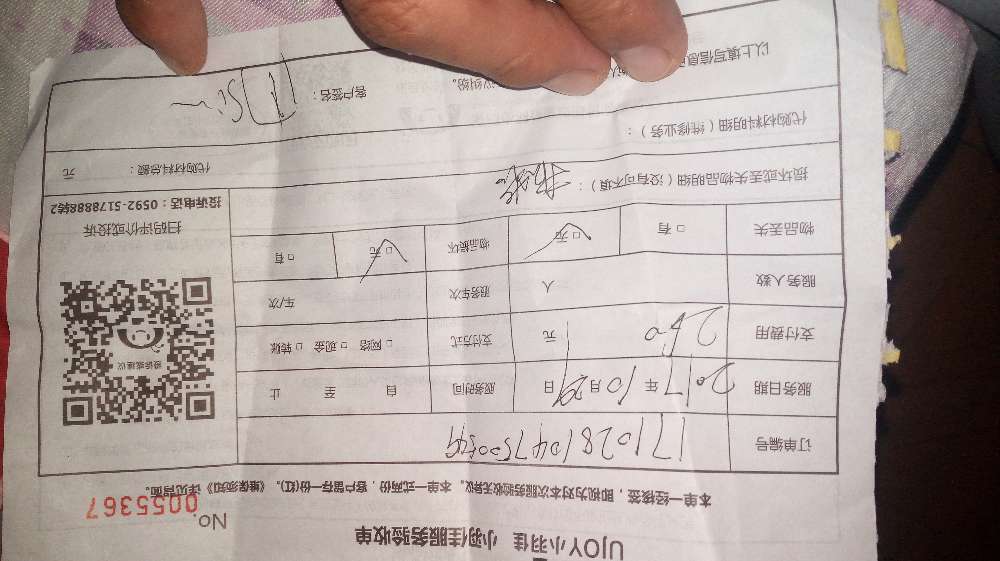 UJOY小羽佳 小羽佳服务验收单
No. 0055367
本单一经接签，即视为对本次服务验收无异议。本单一式两份，客户留存一份(红)。《维保须知》详见背面。
订单编号 17102810475005
服务日期 2017 年 10 月 29 日 服务时间 自 至 止
支付费用 250 元 支付方式 □ 网络 □ 现金 □ 转账
服务人数 人 服务车次 车/次
物品丢失 □ 有 □ 无 物品损坏 □ 无 □ 有
损坏或丢失物品明细（没有可不填）：
代购材料明细（维修业务）： 代购材料总额： 元
以上填写信息 议纠纷。 客户签名：
投诉或建议
扫码评价或投诉
投诉电话：0592-5178888转2